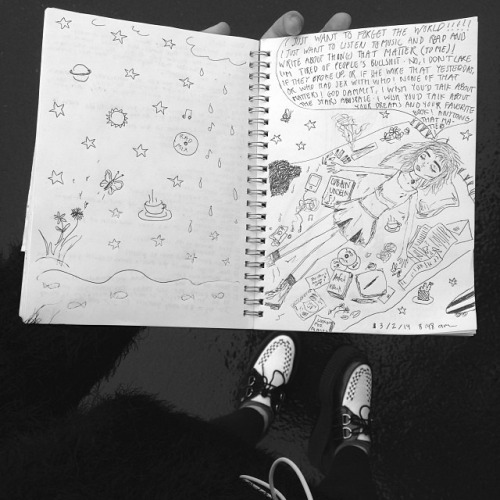 SAD
MIX
I JUST WANT TO FORGET THE WORLD!!!!!
I JUST WANT TO LISTEN TO MUSIC AND READ AND
WRITE ABOUT THINGS THAT MATTER (TO ME)!
I'M TIRED OF PEOPLE'S BULLSHIT. NO, I DON'T CARE
IF THEY BROKE UP OR IF SHE WORE THAT YESTERDAY,
OR WHO HAD SEX WITH WHO! NONE OF THAT
MATTERS! GOD DAMMIT, I WISH YOU'D TALK ABOUT
THE STARS I WISH YOU'D TALK ABOUT
YOUR DREAMS AND YOUR FAVORITE
BOOK! ANYTHING
THAT MA-
URBAN
3/2/14 8:48 am